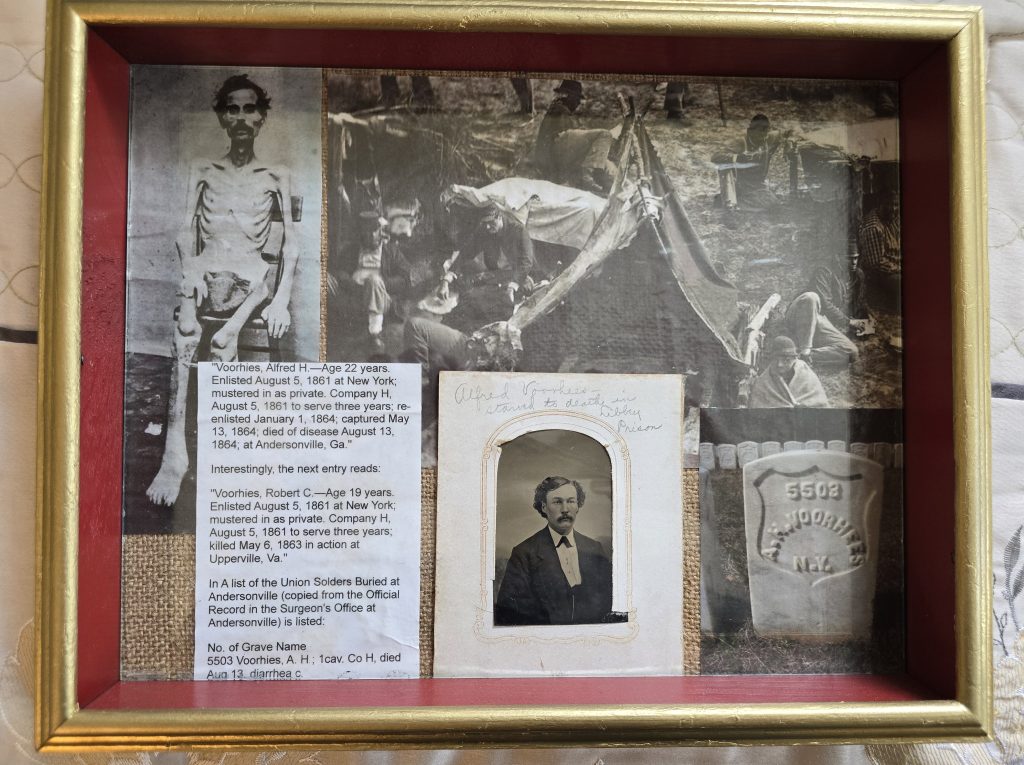 "Voorhies, Alfred H.—Age 22 years.
Enlisted August 5, 1861 at New York;
mustered in as private. Company H,
August 5, 1861 to serve three years; re-
enlisted January 1, 1864; captured May
13, 1864; died of disease August 13,
1864; at Andersonville, Ga."
Interestingly, the next entry reads:
"Voorhies, Robert C.—Age 19 years.
Enlisted August 5, 1861 at New York;
mustered in as private. Company H,
August 5, 1861 to serve three years;
killed May 6, 1863 in action at
Upperville, Va."
In A list of the Union Solders Buried at
Andersonville (copied from the Official
Record in the Surgeon's Office at
Andersonville) is listed:
No. of Grave Name
5503 Voorhies, A. H.; 1cav. Co H, died
Aug 13, diarrhea c.
Alfred Voorhees—
starved to death in
Libby
Prison
5503
A.H. VOORHEES
N.Y.